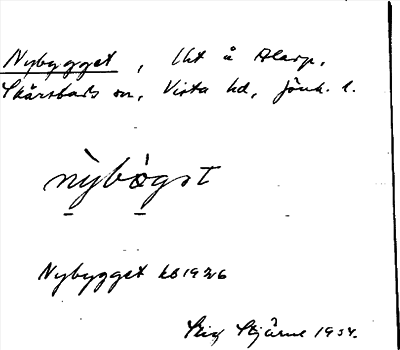 Nybygget, Lht å Alarp,
Skärstads sn, Vista hd, Jönk. l.
nỳbo̊gst
Nybygget kb 1926
Stig Stjärne 1934.